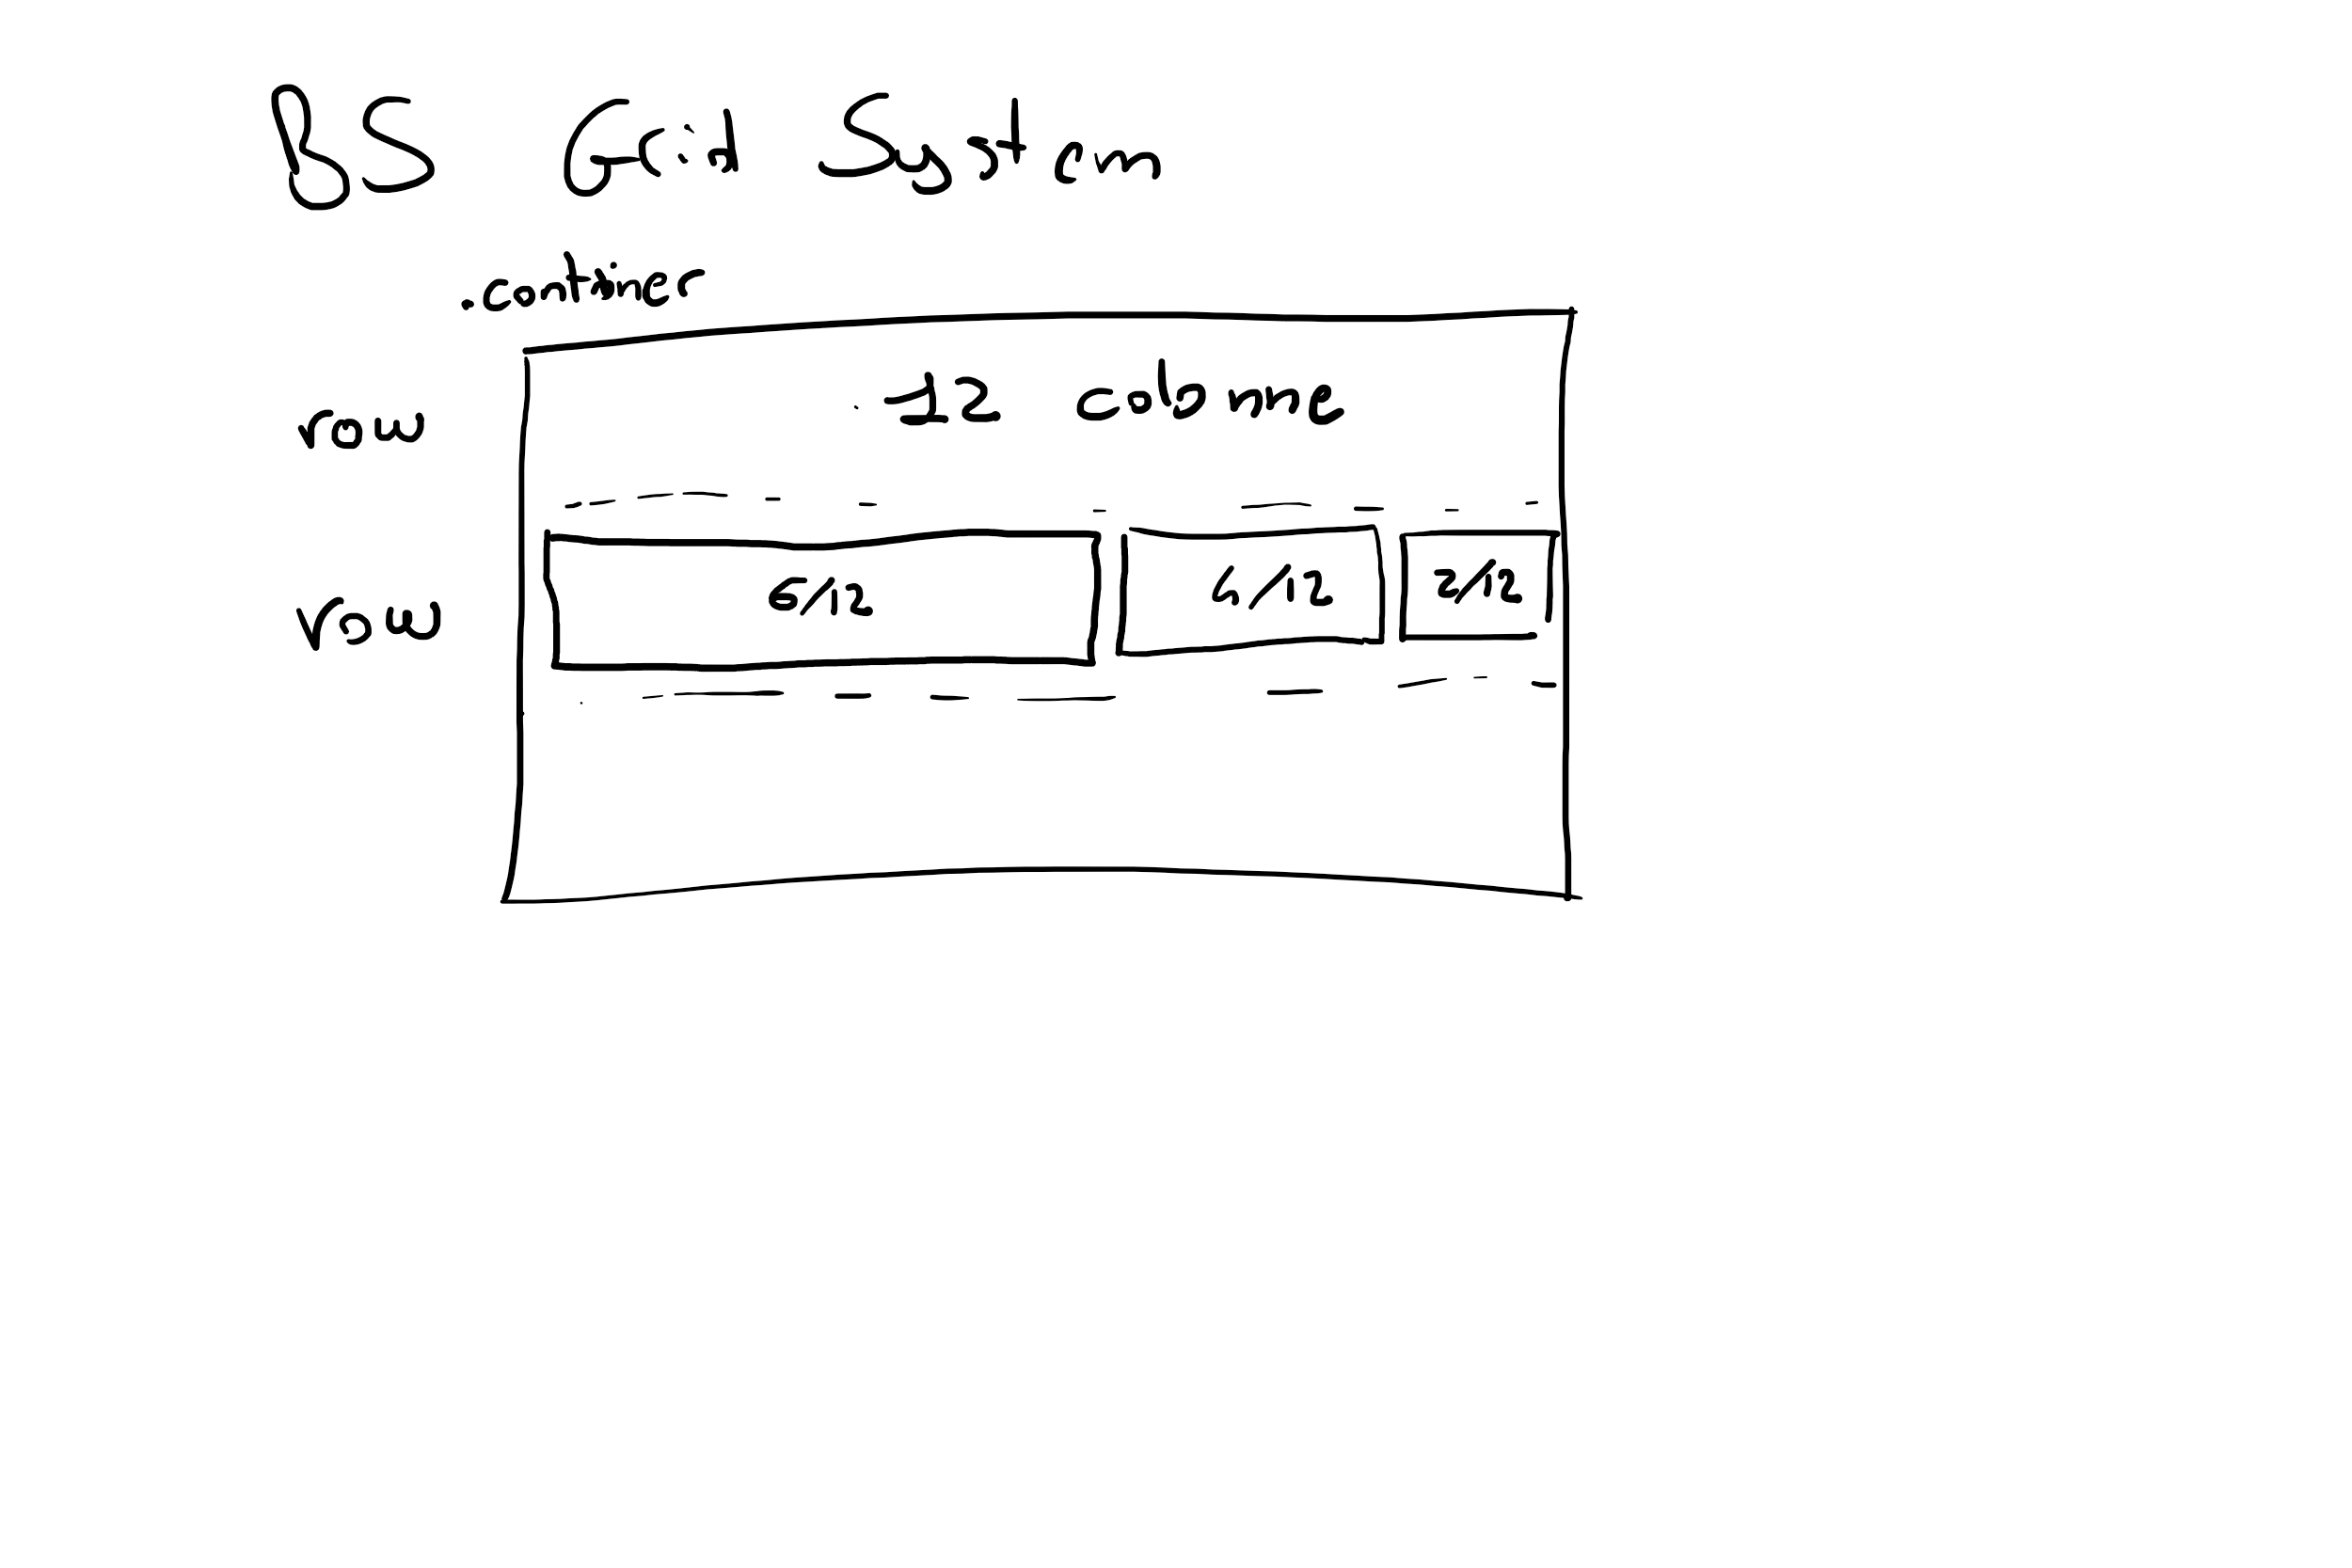 BS Grid System
.container
row 12 colonne
row 6/12 4/12 2/12